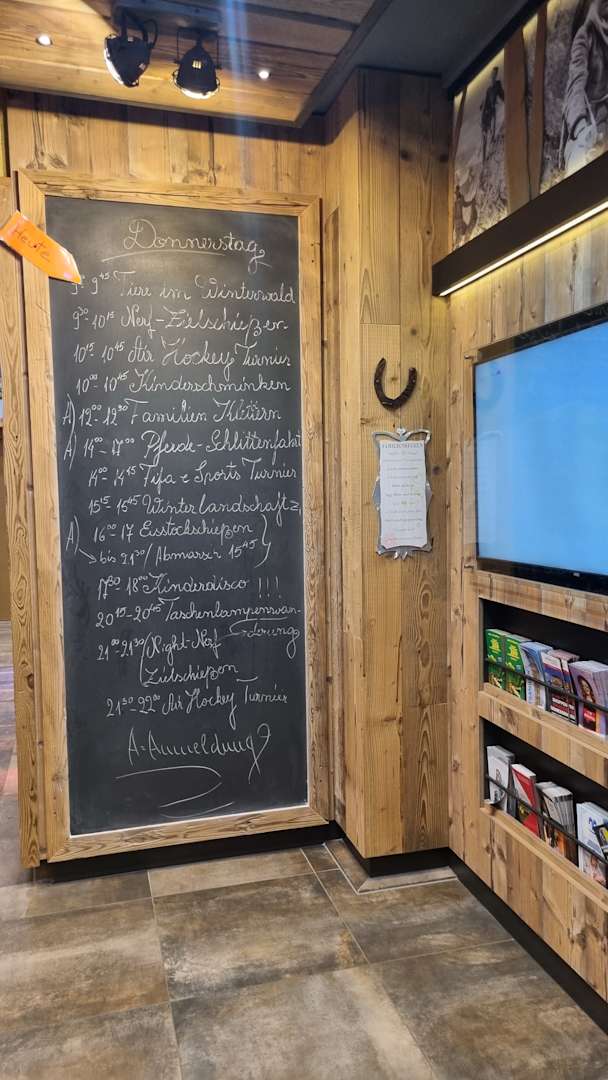 Heute
Donnerstag
9⁴⁵ Tiere im Winterwald
9³⁰-10¹⁵ Nerf-Zielschießen
10¹⁵-10⁴⁵ Air Hockey Turnier
10⁰⁰-10⁴⁵ Kinderschminken
A) 12⁰⁰-12³⁰ Familien Klettern
A) 14⁰⁰-17⁰⁰ Pferde-Schlittenfahrt
14⁰⁰-14⁴⁵ Fifa e Sports Turnier
15¹⁵-15⁴⁵ Winterlandschaft
A) 16⁰⁰-17 Eisstockschießen
bis 21³⁰/Abmarsch 15⁴⁵
17³⁰-18⁰⁰ Kinderdisco!!!
20¹⁵-20⁴⁵ Taschenlampenwan-
derung
21⁰⁰-21³⁰ Night-Nerf
Zielschießen
21³⁰-22⁰⁰ Air Hockey Turnier
A=Anmeldung